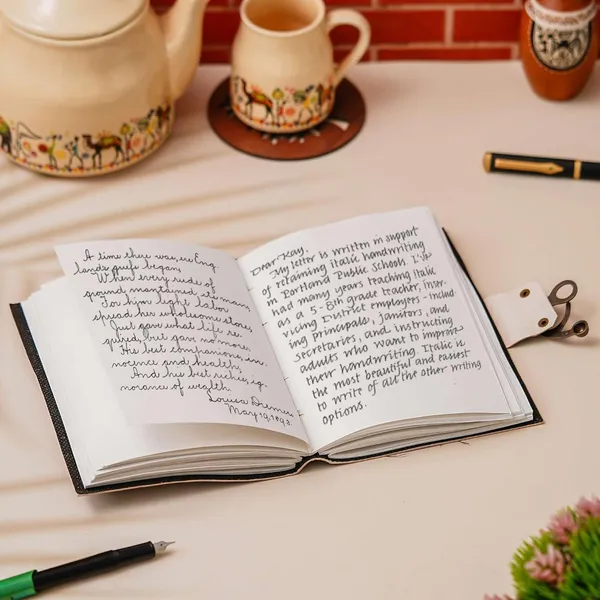 A time there was, ere Eng
lands griefs began,
When every rude of
ground maintained its man
For him light labor
spread her wholesome store,
Just gave what life re
quired, but gave no more.
His best companions, in-
nocence and health,
And his best riches, ig-
norance of wealth.
Louisa
May 19, 1893.
Dear Kay,
My letter is written in support
of retaining Italic handwriting
in Portland Public Schools. I've
had many years teaching Italic
as a 5-8th grade teacher, inser-
vicing District employees - includ-
ing principals, janitors, and
secretaries, and instructing
adults who want to improve
their handwriting. Italic is
the most beautiful and easiest
to write of all the other writing
options.